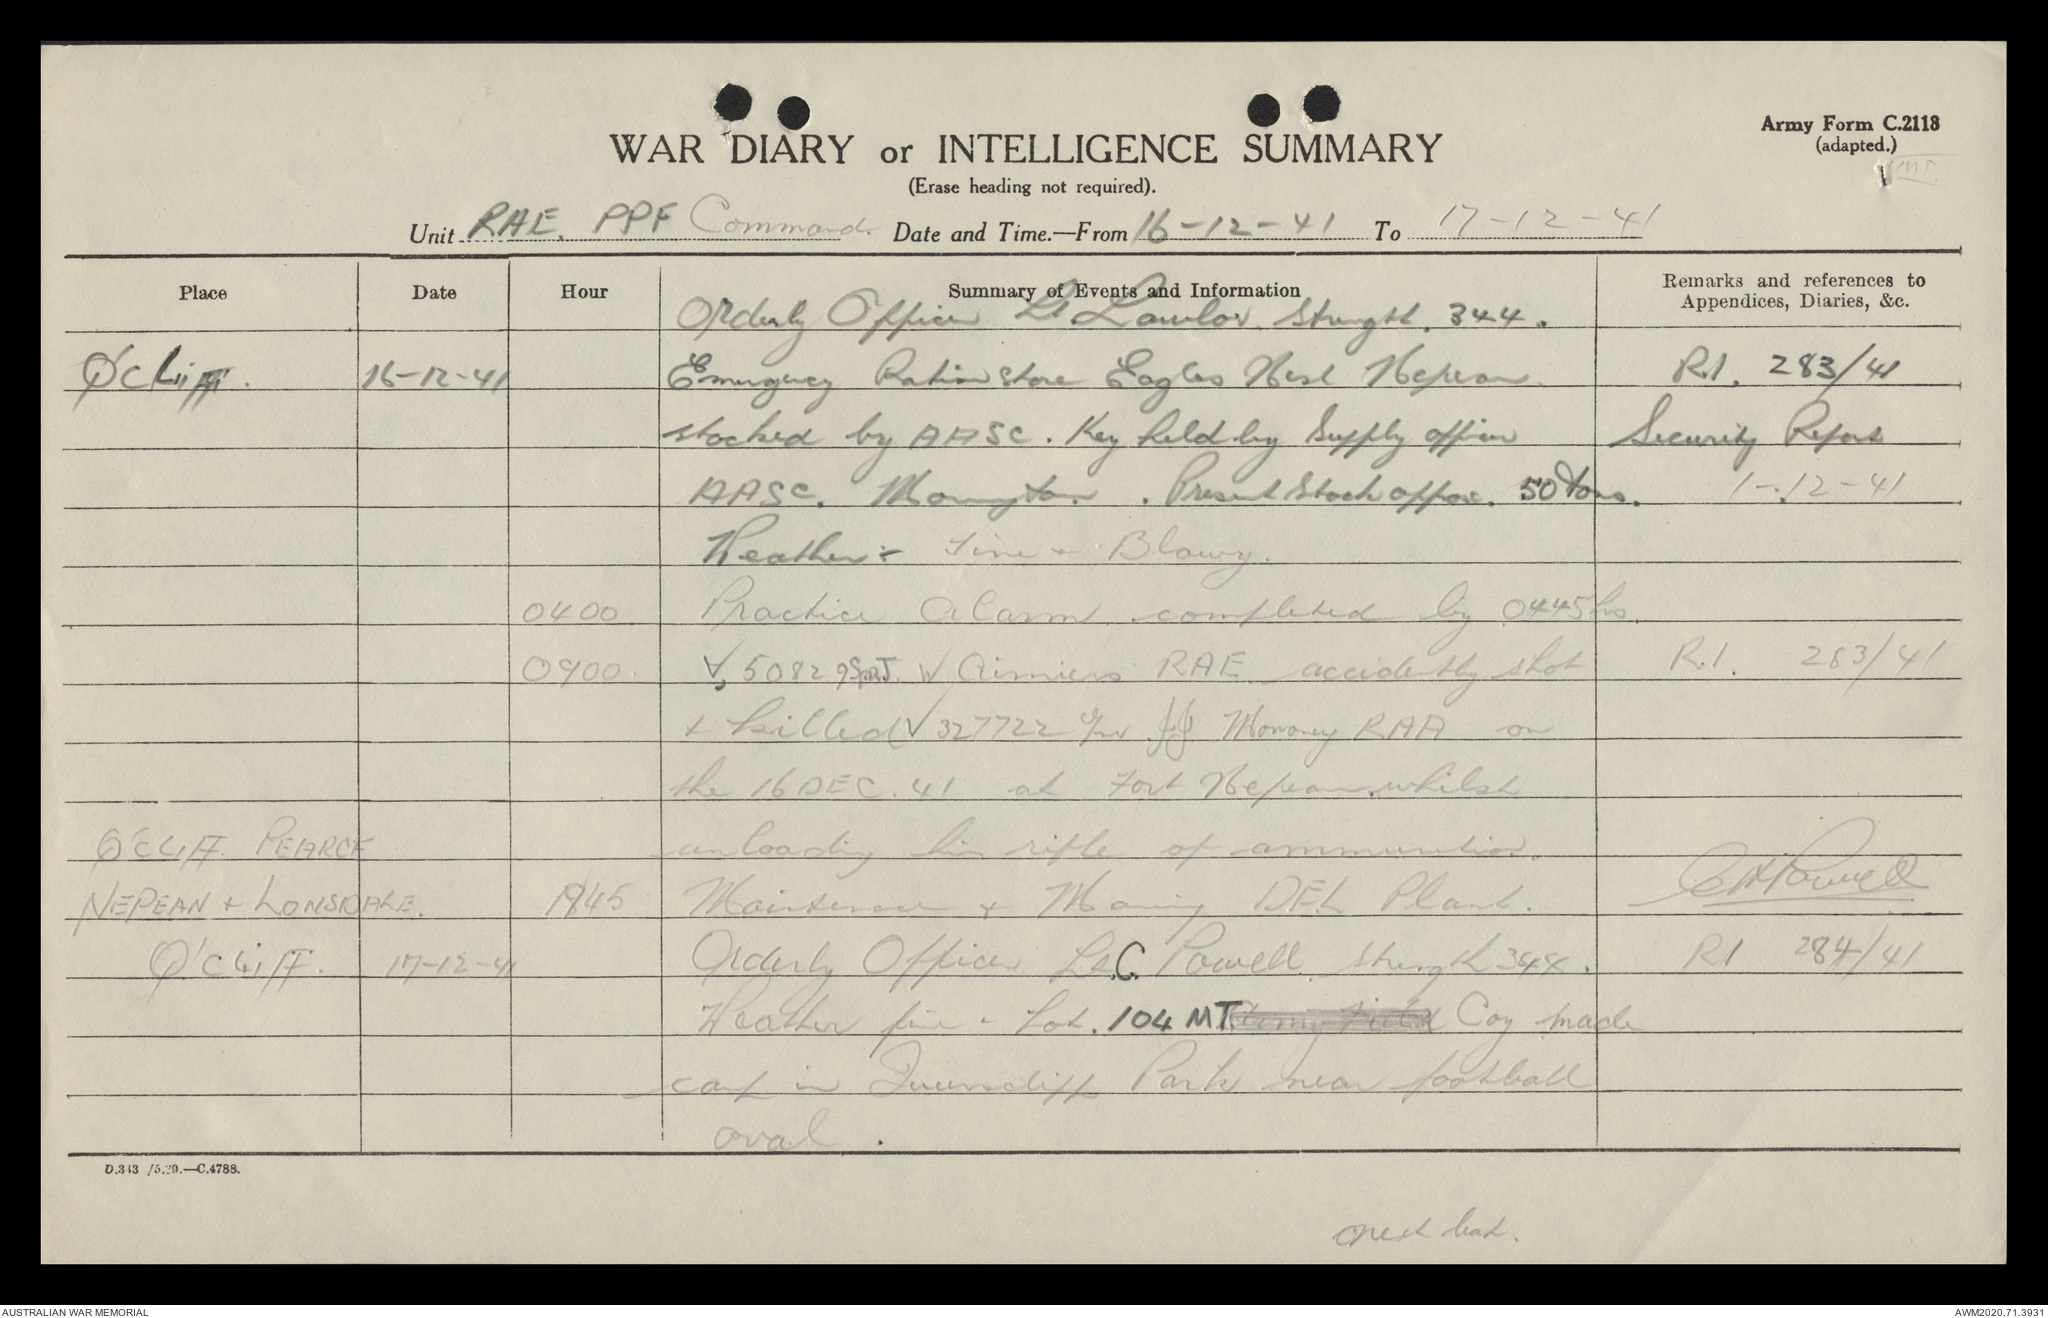 Army Form C.2118
(adapted.)
WAR DIARY or INTELLIGENCE SUMMARY
(Erase heading not required).
Unit RAE. PPF Command. Date and Time.—From 16-12-41 To 17-12-41
Place Date Hour Summary of Events and Information Remarks and references to
Appendices, Diaries, &c.
Orderly Officer Lt Lawlor. Strength. 344.
Q'Cliff. 16-12-41 Emergency Ration store Eagles Nest Nepean R.1. 283/41
stocked by AASC. Key held by Supply officer Security Report
AASC. Mornington. Present Stock approx. 50 tons. 1-12-41
Weather:- Fine + Blowy.
0400 Practice Alarm completed by 0445 hrs.
0900. V 50829 Spr J. W RAE accidently shot R.1. 283/41
+ killed V 327722 Gnr JJ Moroney RAA on
the 16 DEC. 41 at Fort Nepean whilst
Q'CLIFF. PEARCE unloading his rifle of ammunition.
NEPEAN + LONSDALE. 1945 Maintenance + Maning DEL Plant. Powell
Q'Cliff. 17-12-41 Orderly Officer Lt. C. Powell. Strength 344. R1 284/41
Weather fine - hot. 104 MT Coy made
camp in Queenscliff Park near football
oval.
D.343 /5.39.—C.4788.
AUSTRALIAN WAR MEMORIAL
AWM2020.71.3931